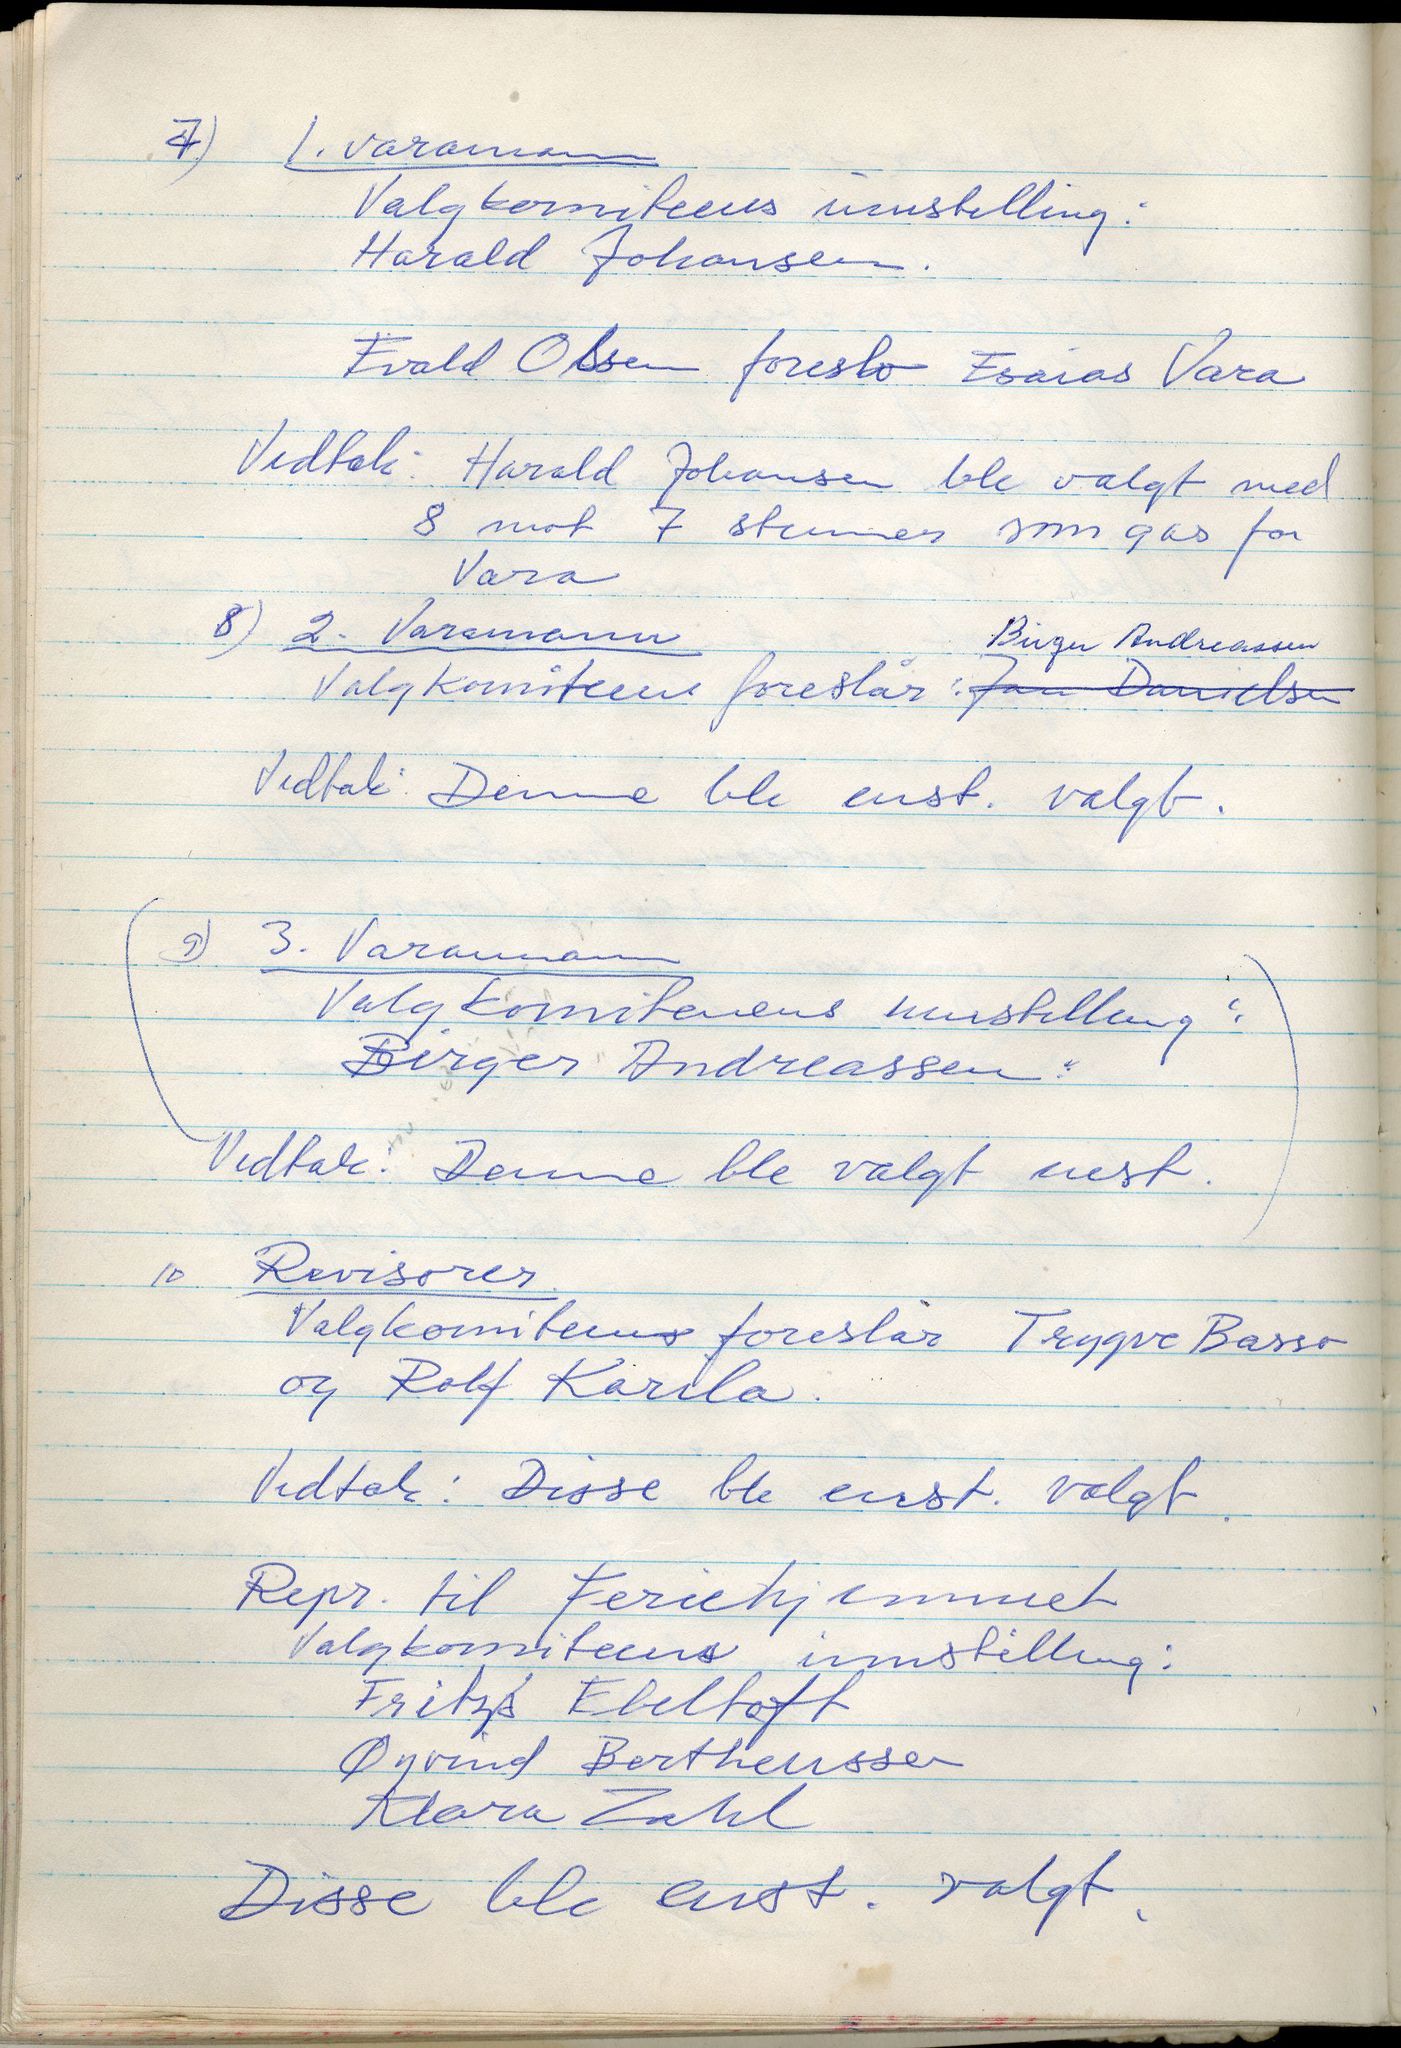 7) 1. varamann
Valgkomiteens innstilling:
Harald Johansen.
Evald Olsen foreslo Esaias Vara
Vedtak: Harald Johansen ble valgt med
8 mot 7 stemmer som gas for
Vara
8) 2. Varamann
Birger Andreassen
Valgkomiteens foreslår: Jan Danielsen
Vedtak: Denne ble enst. valgt.
9) 3. Varamann
Valgkomiteens innstilling:
Birger Andreassen.
Vedtak: Denne ble valgt enst.
10 Revisorer.
Valgkomiteens foreslår Trygve Basso
og Rolf Karila.
Vedtak: Disse ble enst. valgt.
Repr. til Feriehjemmet
Valgkomiteens innstilling:
Fritz Ebeltoft
Øyvind Bertheussen
Klara Zahl
Disse ble enst. valgt.